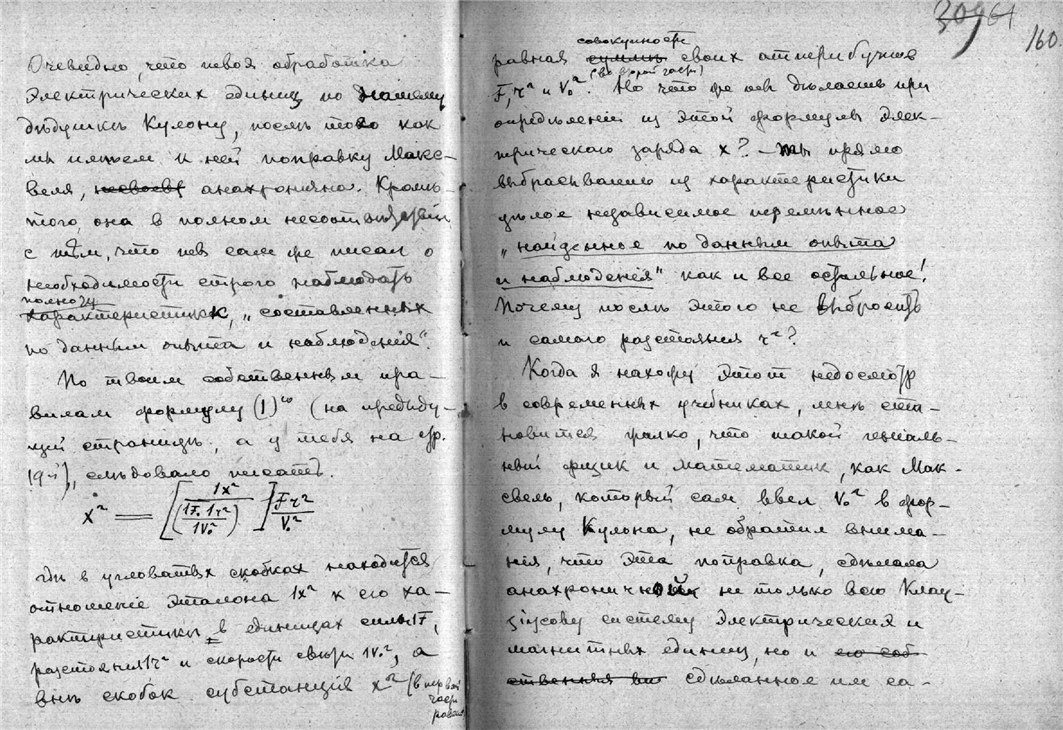 Очевидно, что новая обработка
электрических единиц по нашему
дѣдушкѣ Кулону, послѣ того какъ
къ ней поправку Макс-
веля, анахронична. Кромѣ
того, она в полном несоответствіи
с тѣм, что сам же писал о
необходимости строго наблюдать
полноту
характеристик, „составленных
по данным опыта и наблюденія“.
По твоим собственным пра-
вилам формулу (1)ю (на предъиду-
щей страницѣ, а у тебя на стр.
19й), слѣдовало писать.
x² = [1x² / (1F. 1r² / 1V₀²)] Fr² / V₀²
гдѣ в угловатых скобках находится
отношеніе эталона 1x² к его ха-
рактеристикѣ в единицах силы 1F,
разстоянія 1r² и скорости 1V₀², а
внѣ скобок субстанція x² (в первой
части
30961
160
совокупности
равная суммѣ своих аттрибутов
(во второй части)
F, r² и V₀². Но что же дѣлаешь при
опредѣленіи из этой формулы элек-
трическаго заряда x? — ты прямо
выбрасываешь из характеристики
цѣлое независимое перемѣнное
„найденное по данным опыта
и наблюденія“ как и все остальное!
Почему послѣ этого не выбросить
и самого разстоянія r²?
Когда я нахожу этот недосмотр
в современных учебниках, мнѣ ста-
новится жалко, что такой геніаль-
ный физик и математик, как Мак-
свель, который сам ввел V₀² в фор-
мулу Кулона, не обратил внима-
нія, что эта поправка, сдѣлала
анахроничной не только всю Клау-
зіусову систему электрических и
магнитных единиц, но и его соб-
ственныя сдѣланное им са-